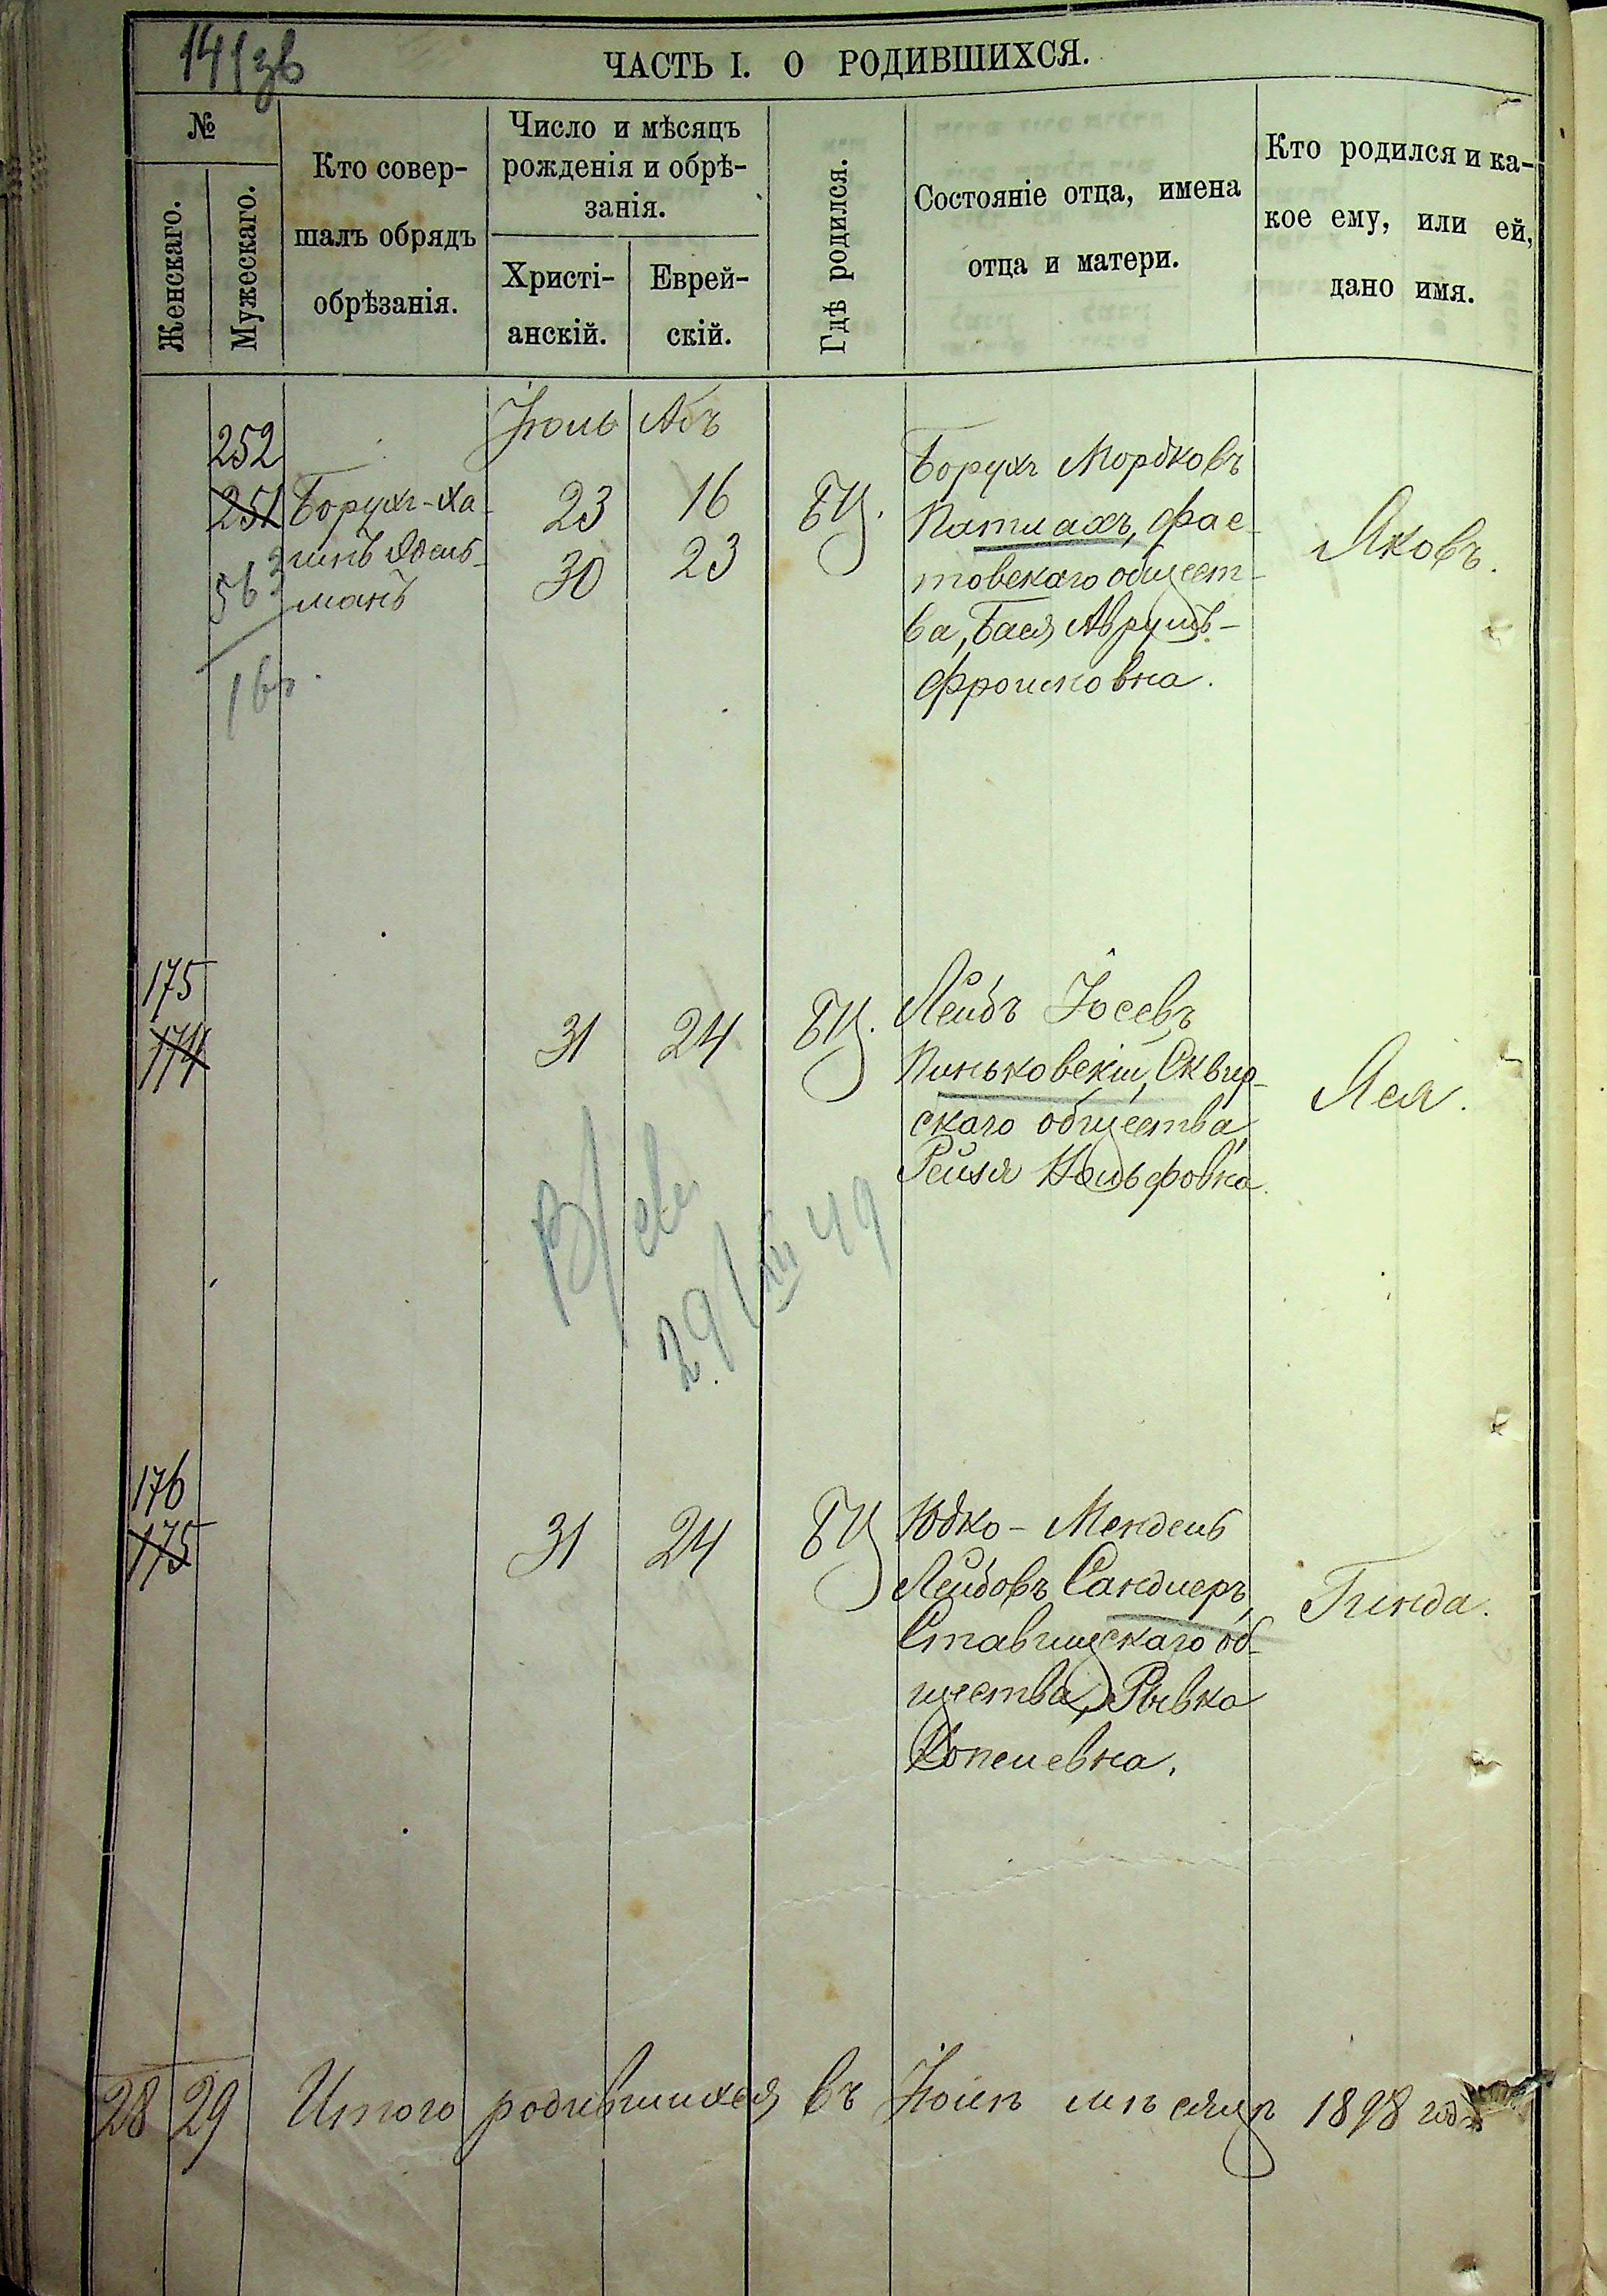 141зв
ЧАСТЬ I. О РОДИВШИХСЯ.
№
Женскаго.
Мужескаго.
Кто совер-
шалъ обрядъ
обрѣзанія.
Число и мѣсяцъ
рожденія и обрѣ-
занія.
Христі-
анскій.
Еврей-
скій.
Гдѣ родился.
Состояніе отца, имена
отца и матери.
Кто родился и ка-
кое ему, или ей,
дано имя.
Іюль Абъ
252
251
563
Борухъ-Ха-
имъ Эдель-
манъ
23 16
30 23
БЦ.
Борухъ Мордковъ
Патлахъ, фас-
товскаго общест-
ва, Бася Аврумъ-
Фроимовна.
Яковъ.
175
174
31 24
БЦ.
Лейбъ Іосевъ
Паньковскій, Сквир-
скаго общества,
Рейзя Вольфовна.
Лея.
29/XII 49
176
175
31 24
БЦ
Юдко-Мендель
Лейбовъ Сандлеръ,
Ставищскаго об-
щества, Рывка
Копелевна.
Гинда.
28 29 Итого родившихся въ Іюлѣ мѣсяцѣ 1898 года